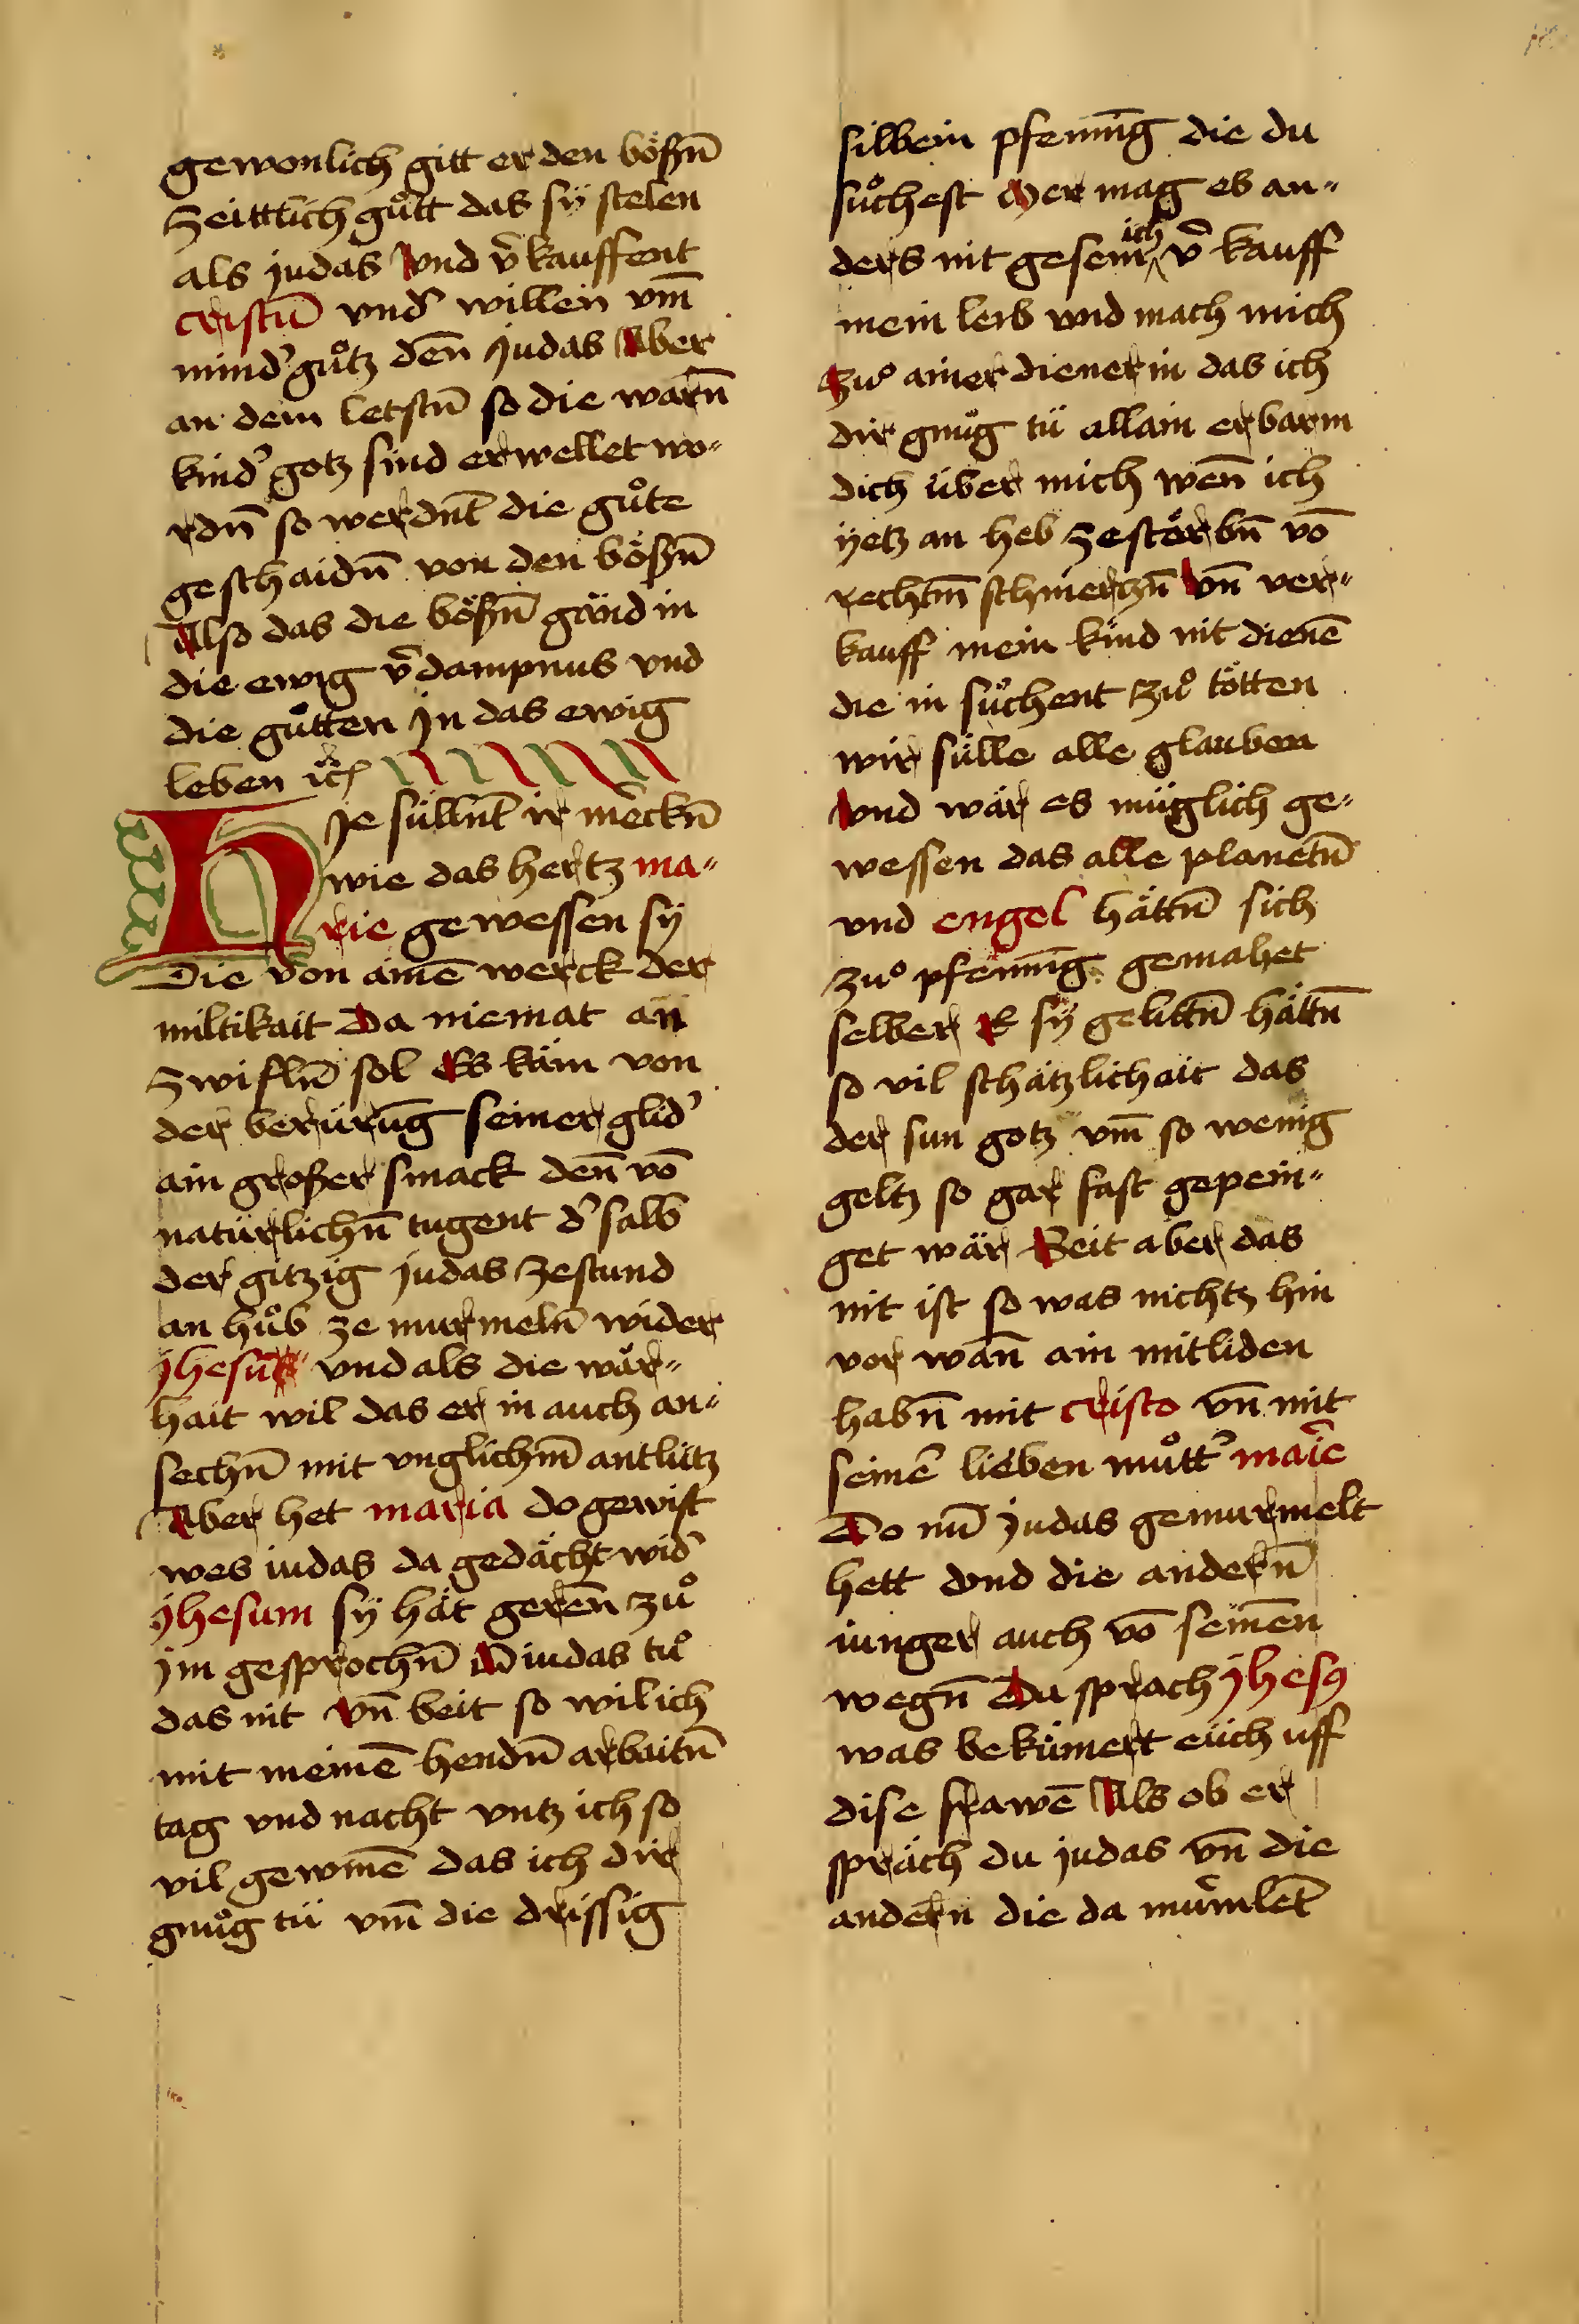 gewonlich gitt er den bößn̄
Zeittlich guͦtt das sÿ stelen
als judas vnd v̄kauffent
cristū vnd' willen vm̄
mind' guͦtz den̄ Judas Aber
an dem letstn̄ so die warn̄
kind' gotz sind erwellet wo⸗
rdn̄ so werdnt̄ die guͦte
geschaidn̄ von den bößn̄
Also das die bößn̄ gänd in
die ewig v̄dampnus vnd
die guͦtten Jn das ewig
leben ⁊c̄
HJe süllnt̄ ir mēckn̄
wie das hertz ma⸗
rie gewessen sÿ
Die von aimē werck der
miltikait Da niemat an
Zwifln̄ sol Es käm von
der berürūg seiner glid'
ain großer smack den̄ vō
natürlichn̄ tugent d' salb
der gitzig judas zestund
an huͦb ze murmeln̄ wider
jhesū vnd als die war⸗
hait wil das er in auch an⸗
sechn̄ mit vnglichm̄ antlütz
Aber het maria do gewist
wes iudas da gedächt wid'
jhesum sÿ hät geren̄ zuͦ
jm gesprochn̄ O iudas tuͦ
das nit vn̄ beit so wil ich
mit meinē hendn̄ arbaitn̄
tag vnd nacht vntz ich so
vil gewinē das ich dir
gnuͦg tü vm̄ die drissig
silbein pfenīng die du
suͦchest Oder mag es an⸗
ders nit gesein ich v̄kauff
mein leib vnd mach mich
Zuͦ ainer dienerin das ich
dir gnuͦg tü allain erbarm
dich über mich wen̄ ich
ÿetz an heb zestörbn̄ vō
rechtm̄ schmerczn̄ vn̄ ver⸗
kauff mein kind nit dienē
die in suͦchent zuͦ tötten
wir sülle alle glauben
vnd wär es müglich ge⸗
wessen das alle planetn̄
vnd engel hättn̄ sich
zuͦ pfenīng gemahet
selber E sÿ gelittn̄ hättn̄
so vil schätzlichait das
der sun gotz vm̄ so wenig
geltz so gar fast gepein⸗
get wär Seit aber das
nit ist so was nichtz hin
vor wan̄ ain mitliden
habn̄ mit cristo vn̄ mit
seinē lieben muͦtt' maīe
Do nū judas gemurmelt
hett vnd die andern̄
iunger auch vō seinēn
wegn̄ Da sprach jhesꝯ
was bekümert eüch uff
dise frawē Als ob er
spräch du judas vn̄ die
andern die da mūrmlet̄